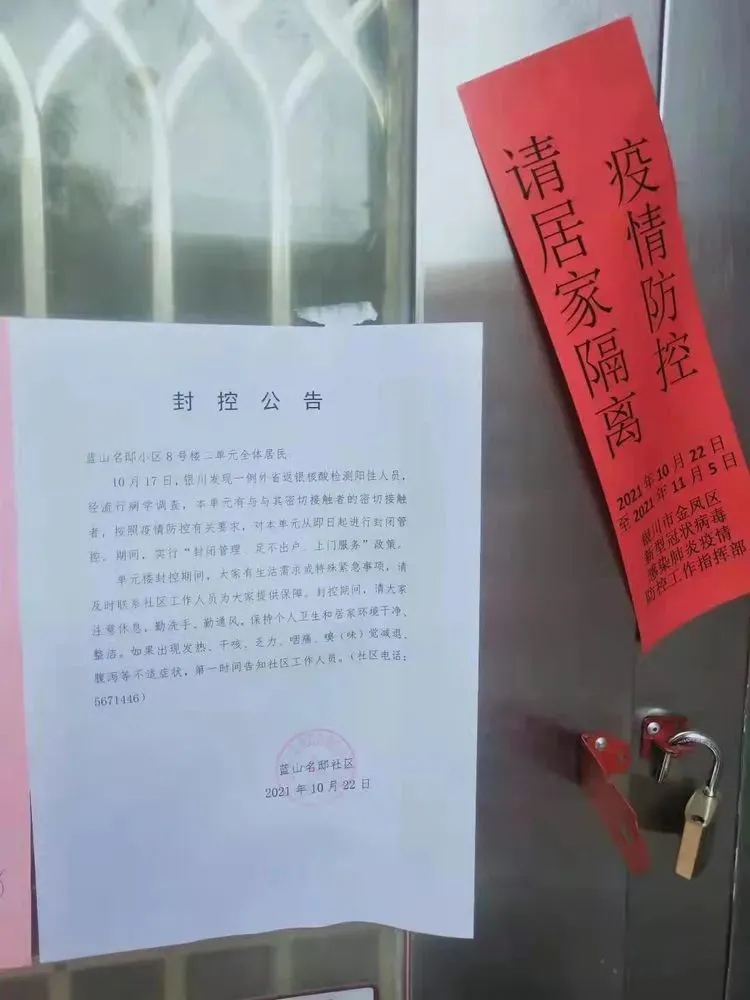 封控公告
蓝山名邸小区8号楼二单元全体居民:
10月17日,银川发现一例外省返银核酸检测阳性人员,
经流行病学调查,本单元有与与其密切接触者的密切接触
者,按照疫情防控有关要求,对本单元从即日起进行封闭管
控。期间,实行“封闭管理、足不出户、上门服务”政策。
单元楼封控期间,大家有生活需求或特殊紧急事项,请
及时联系社区工作人员为大家提供保障。封控期间,请大家
注意休息,勤洗手、勤通风,保持个人卫生和居家环境干净、
整洁。如果出现发热、干咳、乏力、咽痛、嗅(味)觉减退、
腹泻等不适症状,第一时间告知社区工作人员。(社区电话:
5671446)
蓝山名邸社区
2021年10月22日
疫情防控
请居家隔离
2021年10月22日
至2021年11月5日
银川市金凤区
新型冠状病毒
感染肺炎疫情
防控工作指挥部